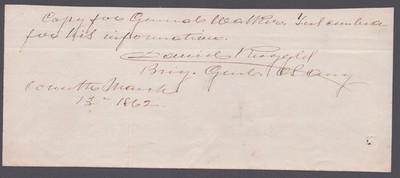 Copy for General Walker Tuscumbia
for his information.
Daniel Ruggles
Brig. Genl. C S Army
Corinth March
13th 1862